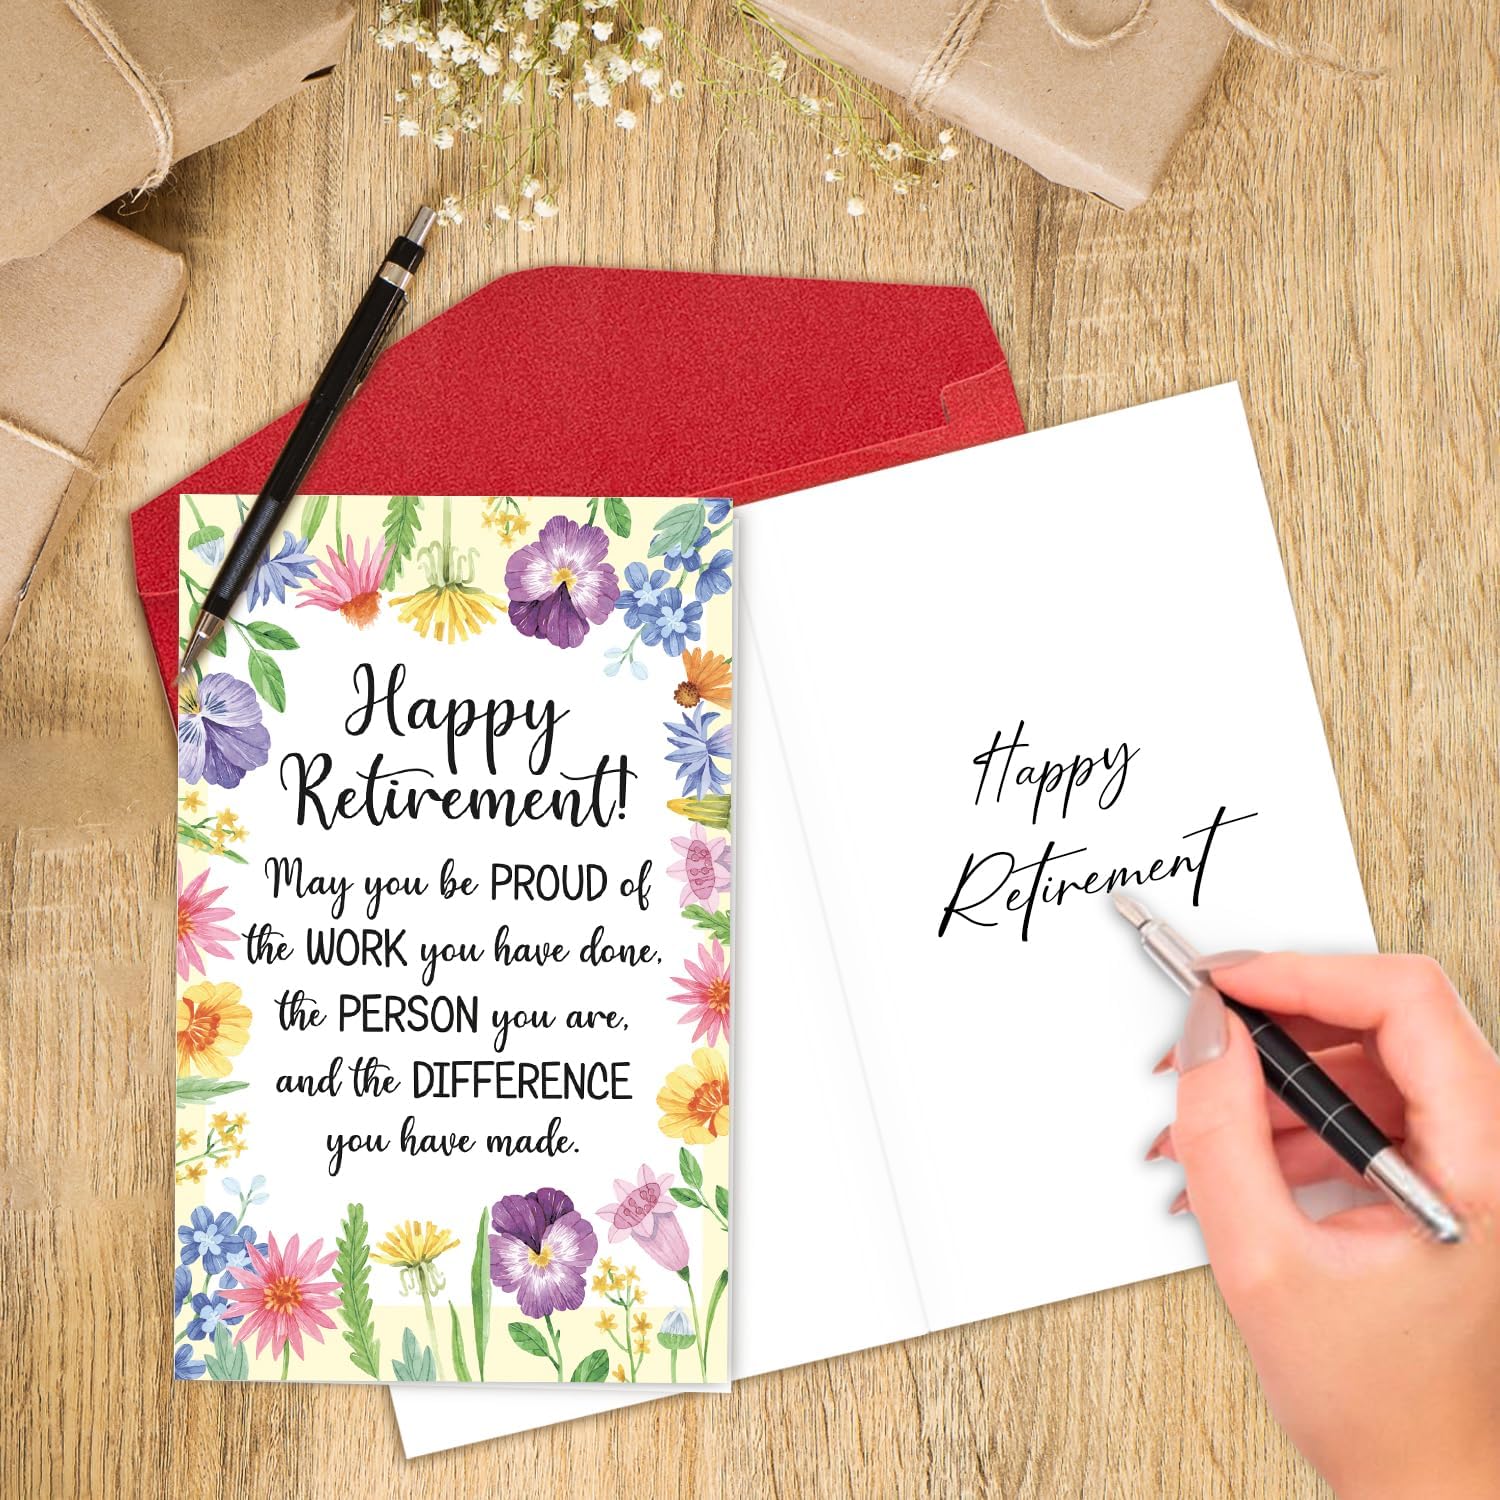 Happy
Retirement!
May you be PROUD of
the WORK you have done,
the PERSON you are,
and the DIFFERENCE
you have made.
Happy
Retirement